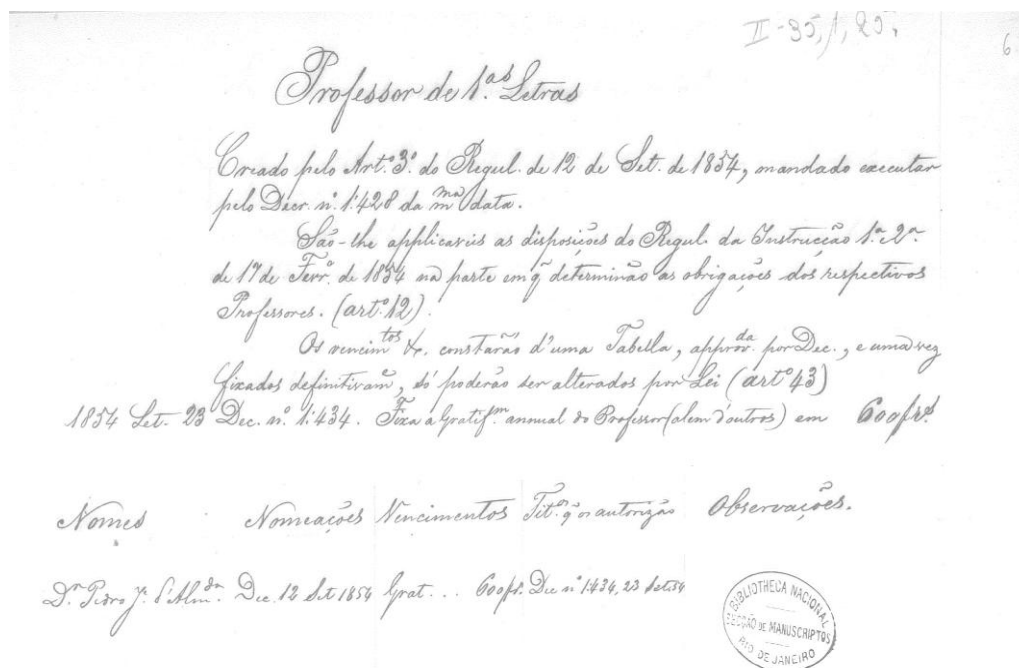 II-35,1,20.
6
Professor de 1.as Letras
Creado pelo Art.º 3.º do Regul. de 12 de Set. de 1854, mandado executar
pelo Decr. n.º 1:428 da m.ma data.
São-lhe applicaveis as disposições do Regul. da Instrucção 1.ª e 2.ª
de 17 de Fevr.º de 1854 na parte em q̃ determinão as obrigações dos respectivos
Professores. (art.º 12).
Os vencim.tos &. constarão d'uma Tabella, approv.da por Dec., e uma vez
fixados definitivam.e, só poderão ser alterados por Lei (art.º 43)
1854 Set. 23 Dec. n.º 1:434. Fixa a Gratif.m annual do Professor (alem d'outros) em 600$rs.
Nomes Nomeações Vencimentos Tit.os q̃ os autorizão Observações.
D.r Pedro J.e d'Alm.da Dec. 12 Set 1854 Grat... 600$. Dec n.º 1434, 23 Set 54
BIBLIOTHECA NACIONAL
SECÇÃO DE MANUSCRIPTOS
RIO DE JANEIRO